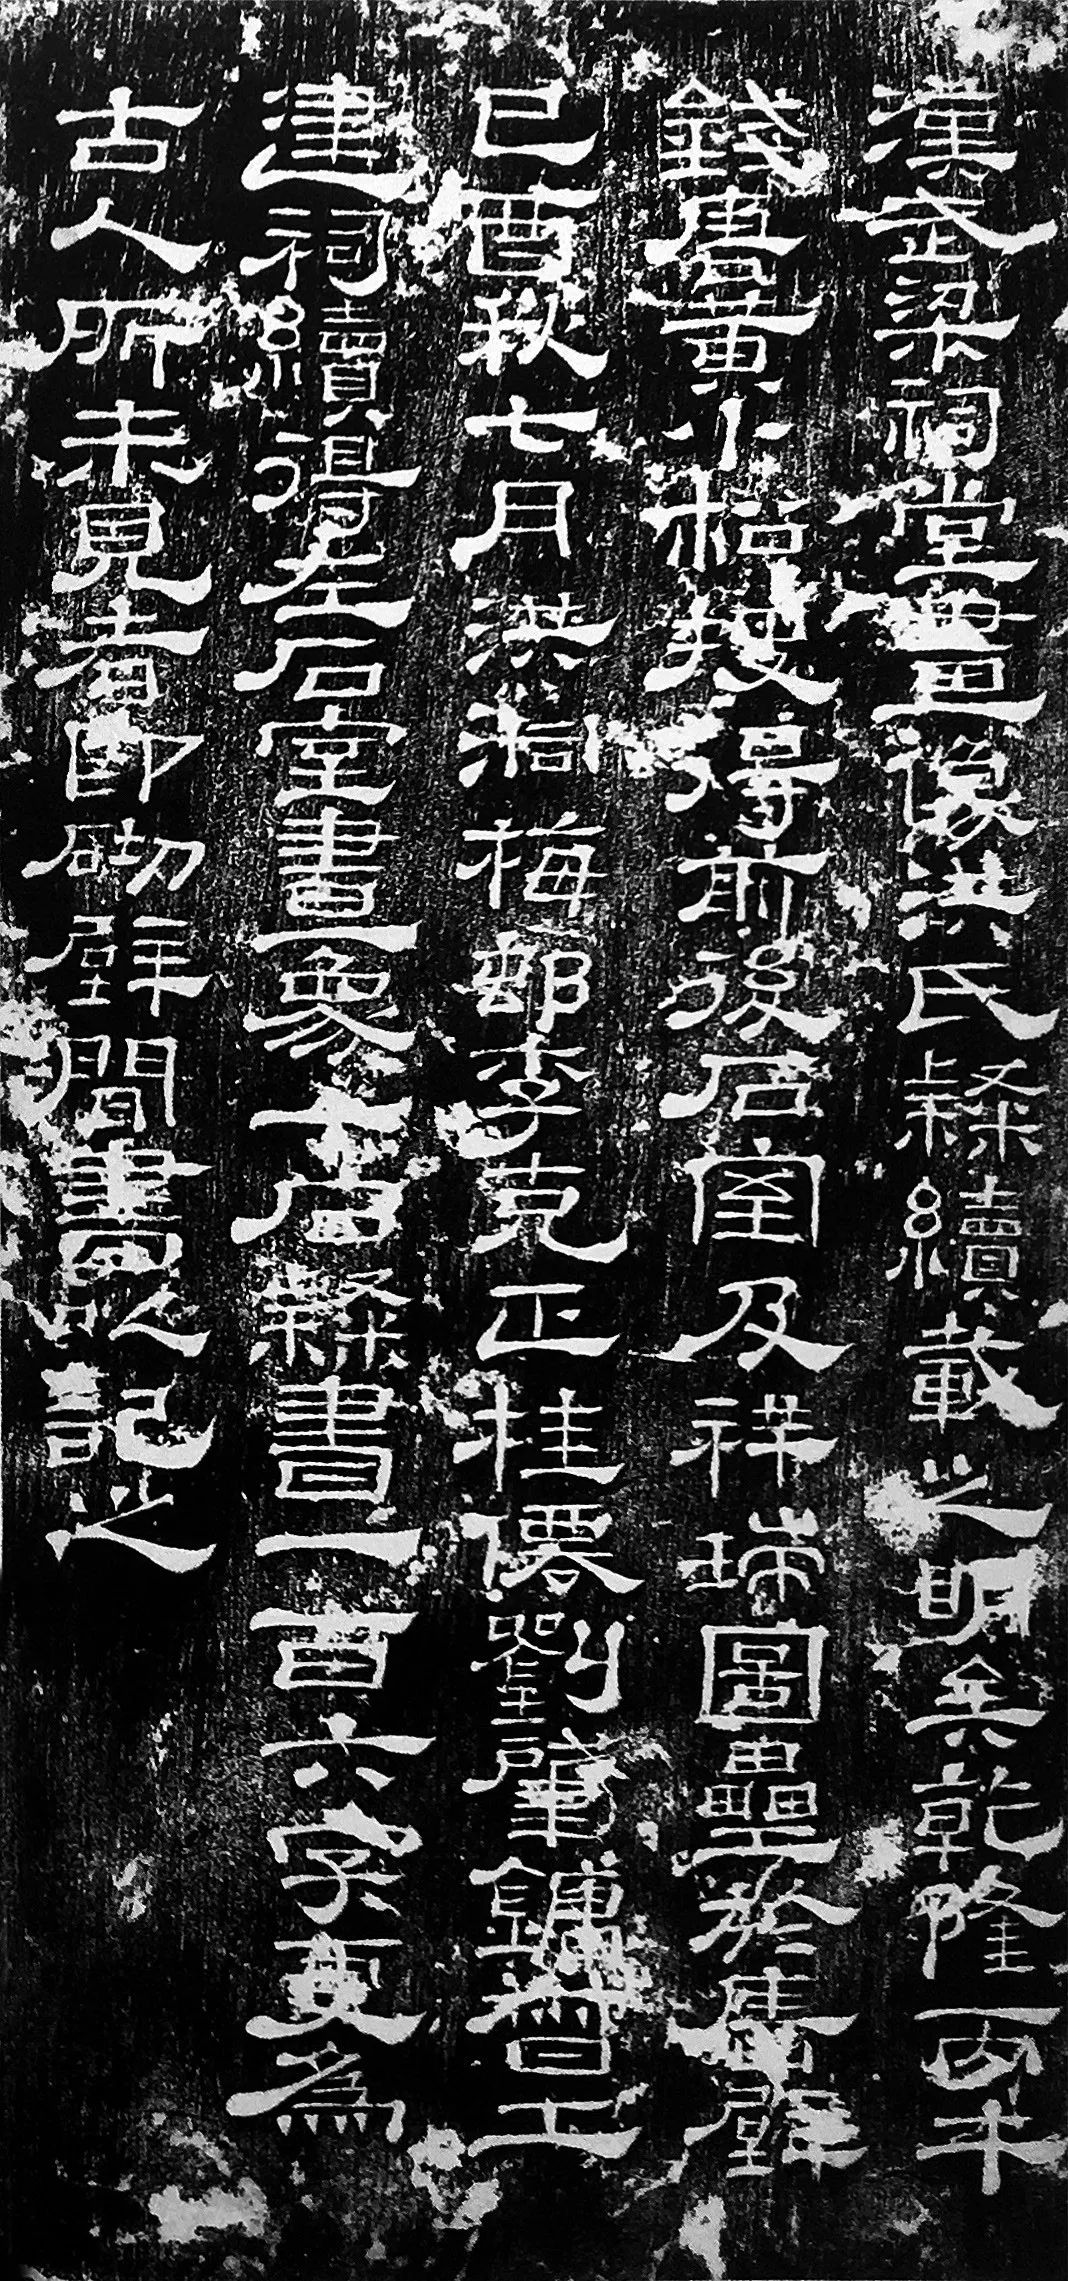 漢武梁祠堂畫像洪氏隸續載之明矣乾隆丙午
錢唐黃小松搜得前後石室及祥瑞圖壘於壁
己酉秋七月洪洞梅邨李克正桂僊劉肇鏞土
建祠續得左石室畫象隸書一百六字更為
古人所未見者即砌壁間書以記之